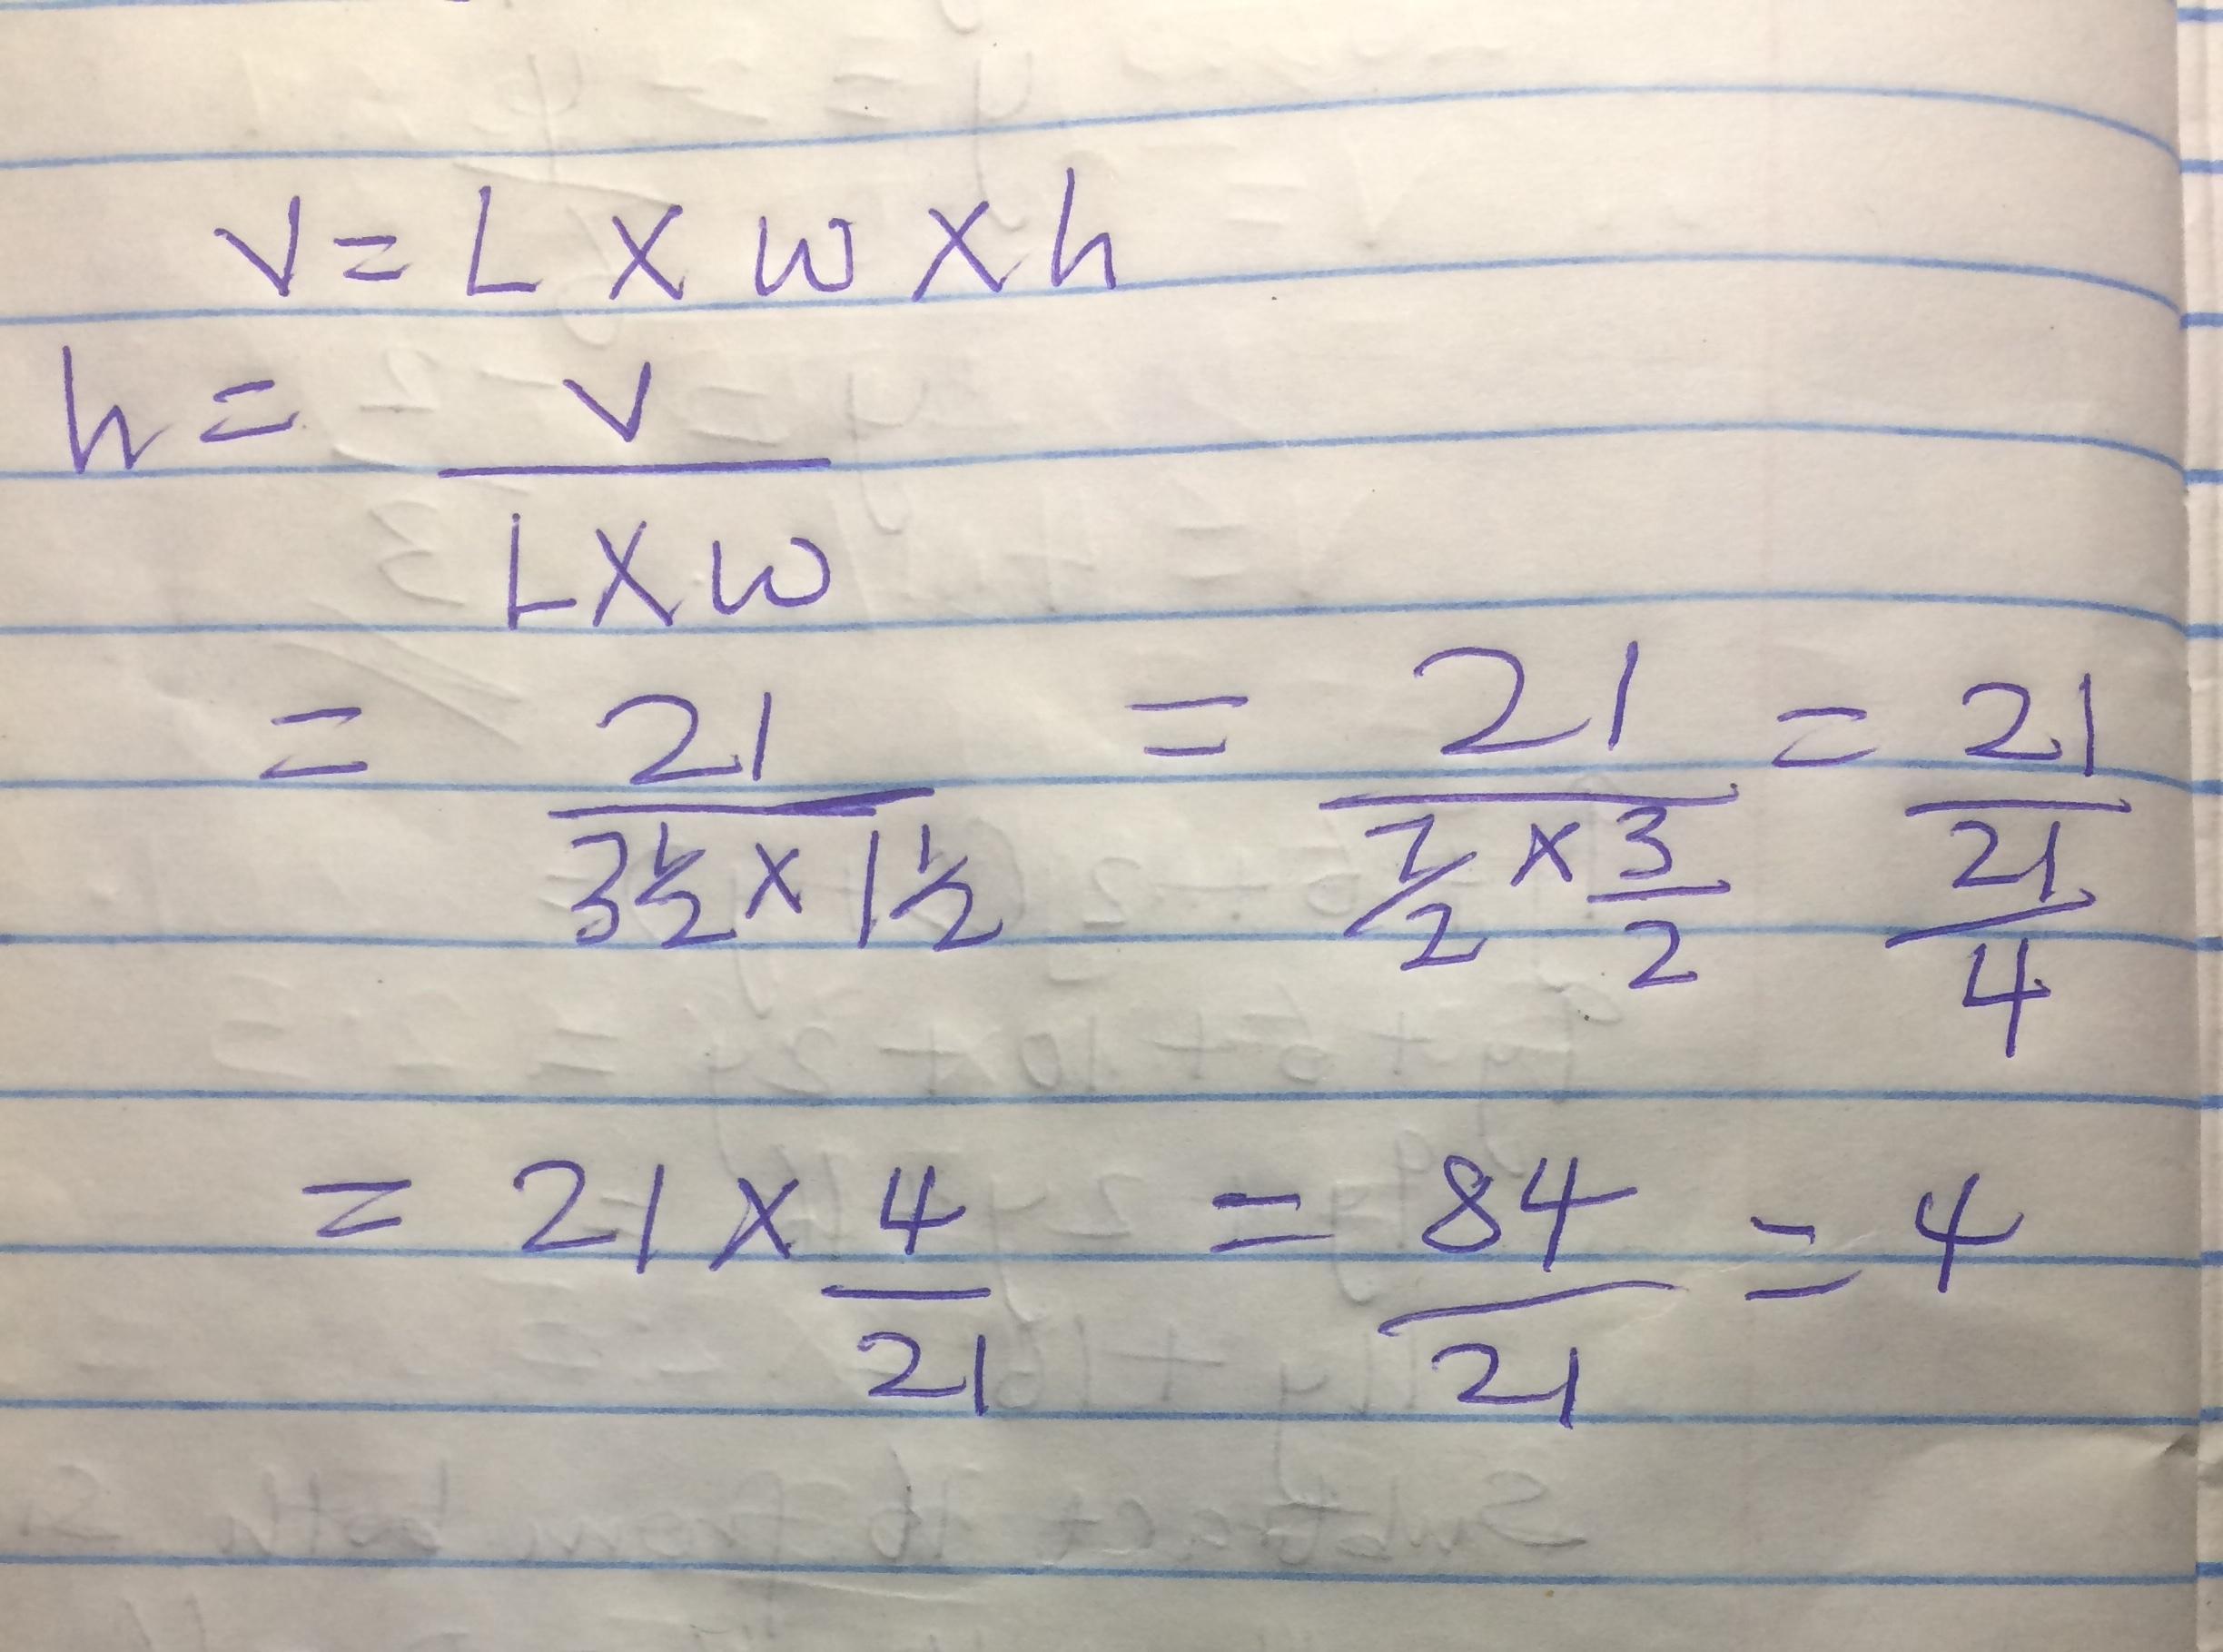 V = L X W X h
h = V / L X W
= 21 / 3 1/2 X 1 1/2 = 21 / 7/2 X 3/2 = 21 / 21/4
= 21 X 4/21 = 84/21 = 4